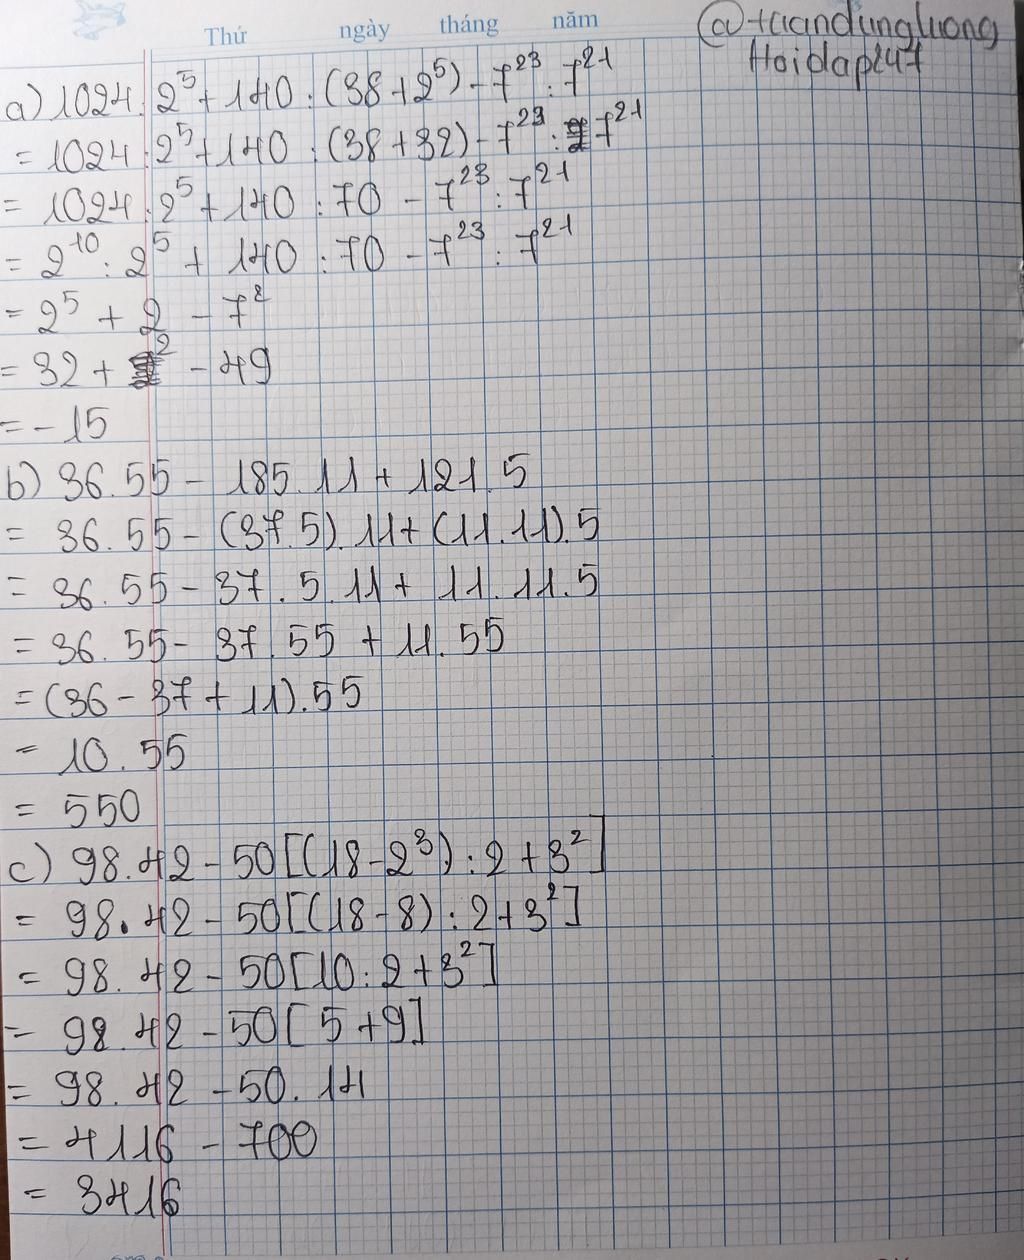 Thứ ngày tháng năm
@tuandungluong
Hoidap247
a) 1024 : 2⁵ + 140 : (38 + 2⁵) - 7²³ : 7²¹
= 1024 : 2⁵ + 140 : (38 + 32) - 7²³ : 7²¹
= 1024 : 2⁵ + 140 : 70 - 7²³ : 7²¹
= 2¹⁰ : 2⁵ + 140 : 70 - 7²³ : 7²¹
= 2⁵ + 2 - 7²
= 32 + 2 - 49
= - 15
b) 36.55 - 185.11 + 121.5
= 36.55 - (37.5).11 + (11.11).5
= 36.55 - 37.5.11 + 11.11.5
= 36.55 - 37.55 + 11.55
= (36 - 37 + 11).55
= 10.55
= 550
c) 98.42 - 50[(18 - 2³) : 2 + 3²]
= 98.42 - 50[(18 - 8) : 2 + 3²]
= 98.42 - 50[10 : 2 + 3²]
= 98.42 - 50[5 + 9]
= 98.42 - 50.14
= 4116 - 700
= 3416